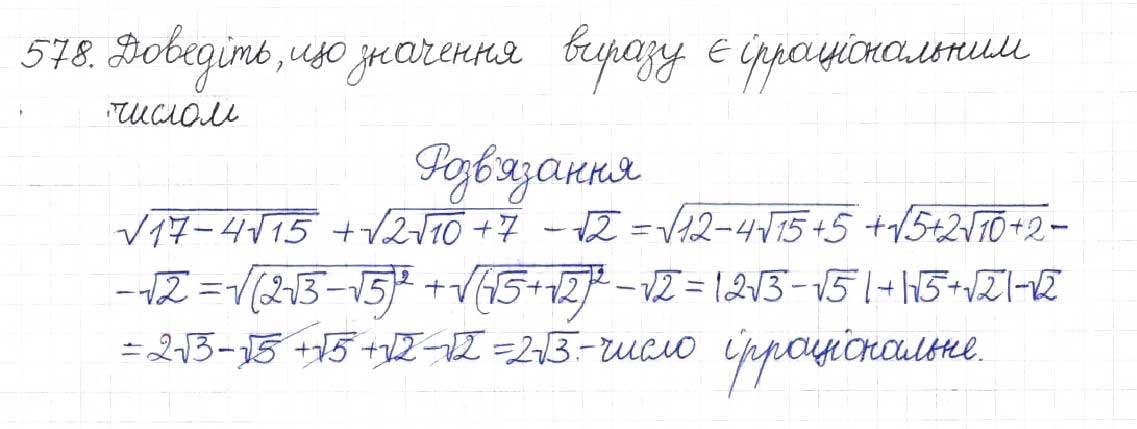 578. Доведіть, що значення виразу є ірраціональним
числом
Розв'язання
√(17-4√15) + √(2√10+7) - √2 = √(12-4√15+5) + √(5+2√10+2) -
-√2 = √((2√3-√5)²) + √((√5+√2)²) - √2 = |2√3-√5| + |√5+√2| - √2
= 2√3-√5+√5+√2-√2 = 2√3 - число ірраціональне.